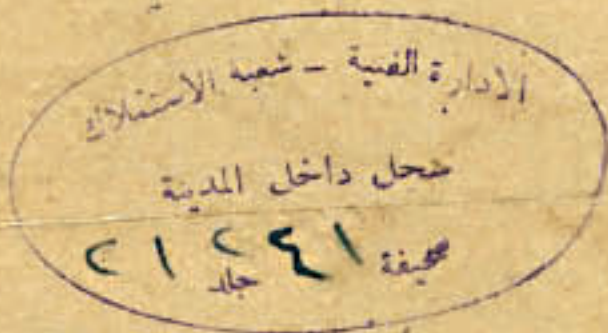 الادارة الفنية ـ شعبة الاستملاك
سجل داخل المدينة
صحيفة ٢٤١ جلد ٢١